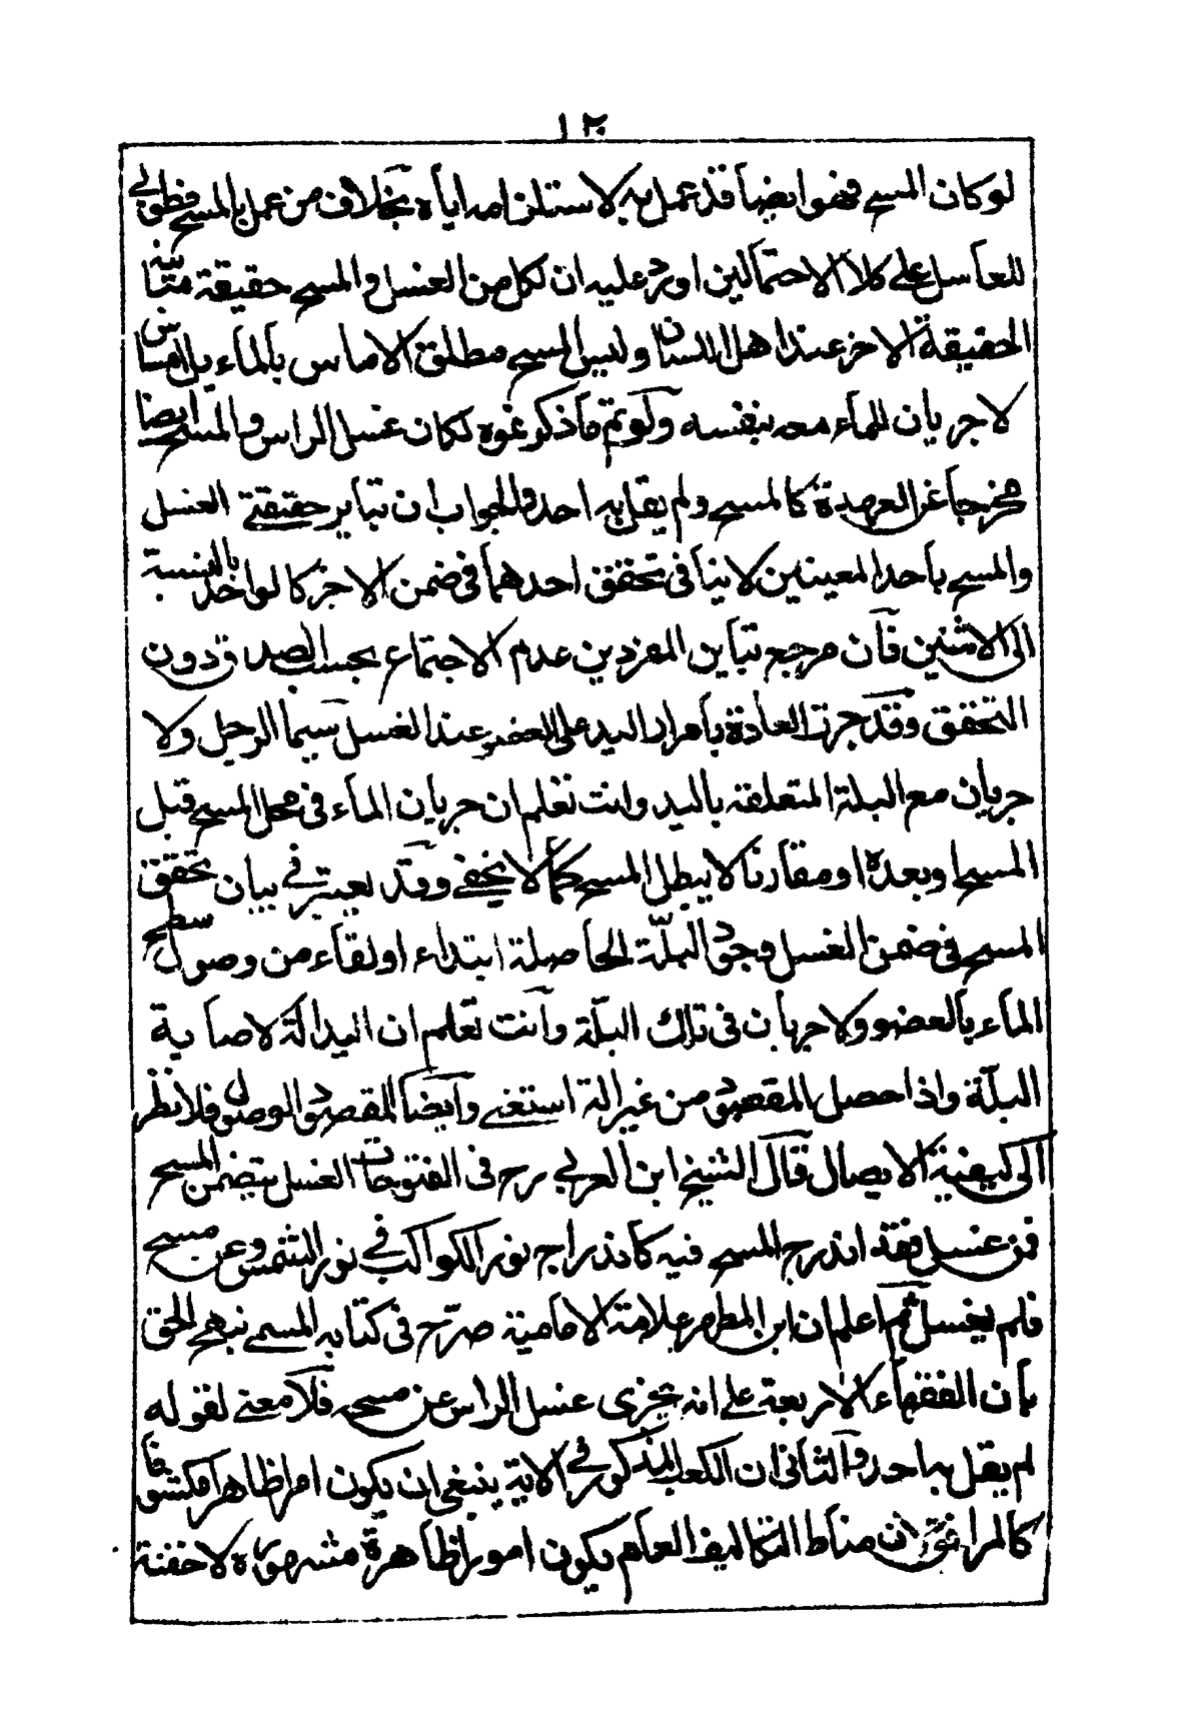 ١٢٠
لو كان المسح فهو ايضا قد عمل به لاستلزامه اياه بخلاف من عمل بالمسح فطوبى
للغاسل على كلا الاحتمالين اورد عليه ان لكل من الغسل والمسح حقيقة متباينة
الحقيقة الاخر عند اهل اللسان وليس المسح مطلق الامساس بالماء بل امساس
لا جريان للماء معه بنفسه ولو تم ما ذكرتموه لكان غسل الراس والمسح ايضا
مخرجا عن العهدة كالمسح ولم يقل به احد والجواب ان تباين حقيقتے الغسل
والمسح باحد المعينين لا ينافى تحقق احدهما فى ضمن الاخر كالواحد بالنسبة
الى الاثنين فان مرجع تباين المفردين عدم الاجتماع بحسب الصدق دون
التحقق وقد جرت العادة بامرار اليد على العضو عند الغسل سيما الرجل ولا
جريان مع البلة المتعلقة باليد وانت تعلم ان جريان الماء فى محل المسح قبل
المسح او بعده او مقارنا لا يبطل المسح كما لا يخفے وقد يعتبر فى بيان تحقق
المسح فى ضمن الغسل وجود البلّة الحاصلة ابتداء او لقاء من وصول سطح
الماء بالعضو ولا جريان فى تلك البلّة وانت تعلم ان اليد الة لاصابة
البلّة واذا حصل المقصود من غير الة استغنے وايضا المقصود الوصول فلا نظر
الى كيفية الايصال قال الشيخ ابن العربے رح فى الفتوحات الغسل يتضمن المسح
فمن غسل فقد اندرج المسح فيه كاندراج نور الكواكب فى نور الشمس ومن مسح
فلم يغسل ثم اعلم ان ابن المطهر علامة الامامية صرّح فى كتابه المسمے نبهج الحق
بان الفقهاء الاربعة على انه يجزى غسل الراس عن مسحه فلا معنے لقوله
لم يقل به احد والثانى ان الكعب المذكور فى الاية ينبغى ان يكون امرا ظاهرا مكشوفا
كالمرافق لان مناط التكاليف العام يكون امورا ظاهرة مشهورة لا خفية